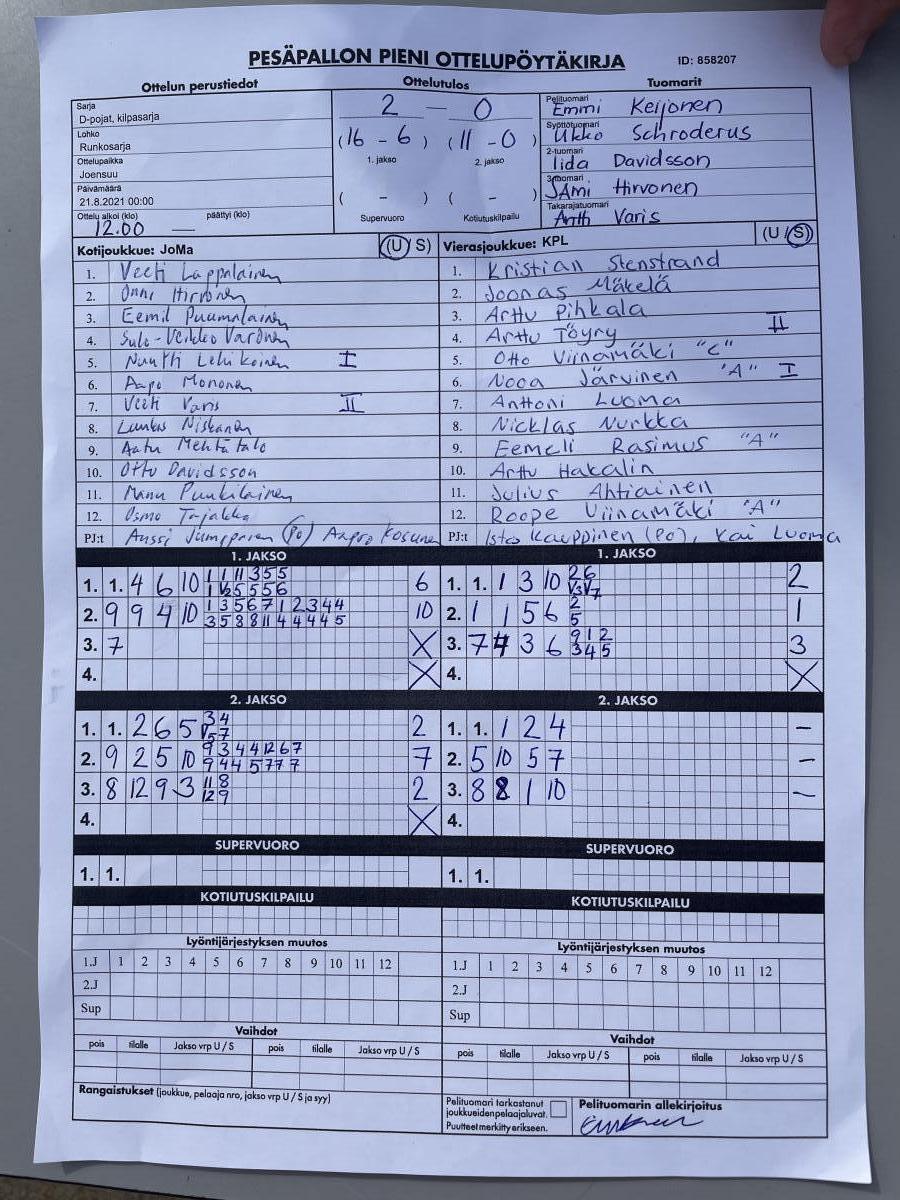 PESÄPALLON PIENI OTTELUPÖYTÄKIRJA
ID: 858207
Ottelun perustiedot
Sarja
D-pojat, kilpasarja
Lohko
Runkosarja
Ottelupaikka
Joensuu
Päivämäärä
21.8.2021 00:00
Ottelu alkoi (klo) päättyi (klo)
12.00 —
Ottelutulos
2 — 0
(16 - 6) (11 - 0)
1. jakso 2. jakso
( - ) ( - )
Supervuoro Kotiutuskilpailu
Tuomarit
Pelituomari
Emmi Keijonen
Syöttötuomari
Ukko Schroderus
2-tuomari
Iida Davidsson
3-tuomari
SAmi Hirvonen
Takarajatuomari
Artth Varis
Kotijoukkue: JoMa (U/S)
1. Veeti Lappalainen
2. Onni Hirvonen
3. Eemil Puumalainen
4. Sulo-Veikko Varonen
5. Nuutti Lehikoinen I
6. Aapo Mononen
7. Veeti Varis II
8. Luukas Niskanen
9. Aatu Mehtätalo
10. Otto Davidsson
11. Manu Puukilainen
12. Osmo Tajakka
PJ:t Anssi Jumppanen (Po) Aapro Kosunen
Vierasjoukkue: KPL (U/S)
1. Kristian Stenstrand
2. Joonas Mäkelä
3. Arttu Pihkala
4. Arttu Töyry II
5. Otto Viinamäki "C"
6. Nooa Järvinen "A" I
7. Anttoni Luoma
8. Nicklas Nurkka
9. Eemeli Rasimus "A"
10. Arttu Hakalin
11. Julius Ahtiainen
12. Roope Viinamäki "A"
PJ:t Isto Kauppinen (Po), Kai Luoma
1. JAKSO
1. 1. 4 6 10 6
2. 9 9 4 10 1 3 5 6 7 1 2 3 4 4 10
3 5 8 8 11 4 4 4 4 5
3. 7 X
4. X
1. JAKSO
1. 1. 1 3 10 2 6 2
2. 1 1 5 6 2 1
5
3. 7 4 3 6 9 1 2 3
3 4 5
4. X
2. JAKSO
1. 1. 2 6 5 3 4 2
2. 9 2 5 10 9 3 4 4 12 6 7 7
9 4 4 5 7 7 7
3. 8 12 9 3 11 8 2
12 9
4. X
2. JAKSO
1. 1. 1 2 4 —
2. 5 10 5 7 —
3. 8 8 1 10 —
4.
SUPERVUORO
1. 1.
SUPERVUORO
1. 1.
KOTIUTUSKILPAILU
KOTIUTUSKILPAILU
Lyöntijärjestyksen muutos
1.J 1 2 3 4 5 6 7 8 9 10 11 12
2.J
Sup
Lyöntijärjestyksen muutos
1.J 1 2 3 4 5 6 7 8 9 10 11 12
2.J
Sup
Vaihdot
pois tilalle Jakso vrp U / S pois tilalle Jakso vrp U / S
Vaihdot
pois tilalle Jakso vrp U / S pois tilalle Jakso vrp U / S
Rangaistukset (joukkue, pelaaja nro, jakso vrp U / S ja syy)
Pelituomari tarkastanut
joukkueiden pelaajaluvat.
Puutteet merkitty erikseen.
Pelituomarin allekirjoitus